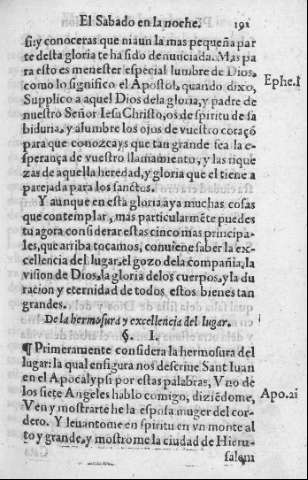 El Sabado en la noche. 191
si: y conoceras que ni aun la mas pequeña par
te desta gloria te ha sido denunciada. Mas pa
ra esto es menester especial lumbre de Dios,
como lo significo el Apostol, quando dixo, Ephe.1
Supplico a aquel Dios dela gloria, y padre de
nuestro Señor Iesu Christo, os de spiritu de sa
biduria, y alumbre los ojos de vuestro coraçõ
para que conozcays que tan grande sea la es-
perança de vuestro llamamiento, y las rique
zas de aquella heredad, y gloria que el tiene a
parejada para los sanctos.
Y aunque en esta gloria aya muchas cosas
que contemplar, mas particularmẽte puedes
tu agora considerar estas cinco mas principa-
les, que arriba tocamos, conuiene saber la ex-
cellencia del lugar, el gozo dela compañia, la
vision de Dios, la gloria delos cuerpos, y la du
racion y eternidad de todos estos bienes tan
grandes.
De la hermosura y excellencia del lugar.
§. I.
¶ Primeramente considera la hermosura del
lugar: la qual en figura nos descriue Sant Iuan
en el Apocalypsi por estas palabras, Vno de
los siete Angeles hablo comigo, diziẽdome, Apo.21
Ven y mostrarte he la esposa muger del cor-
dero. Y leuantome en spiritu en vn monte al
to y grande, y mostrome la ciudad de Hieru-
salem